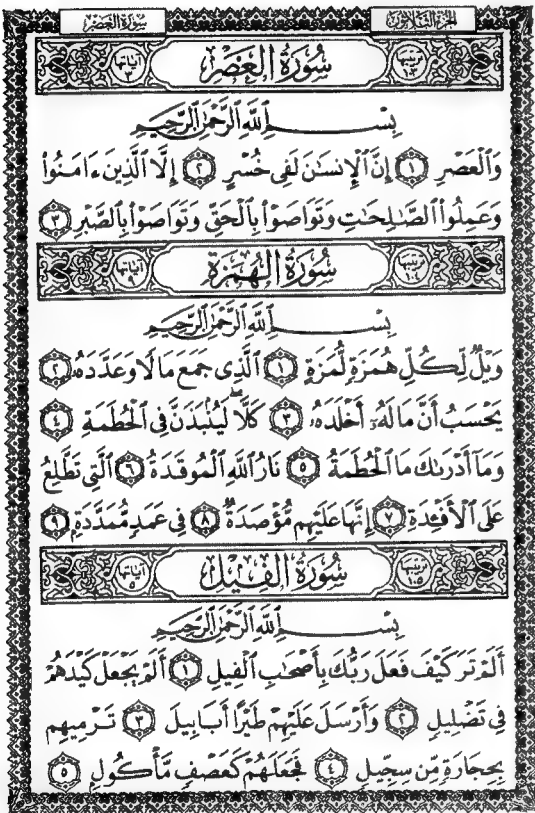 سُورَةُ العَصْرِ الجزء الثلاثون
ترتيبها ١٠٣ سُورَةُ العَصْرِ آياتها ٣
بِسْمِ ٱللَّهِ ٱلرَّحْمَٰنِ ٱلرَّحِيمِ
وَٱلْعَصْرِ ١ إِنَّ ٱلْإِنسَٰنَ لَفِى خُسْرٍ ٢ إِلَّا ٱلَّذِينَ ءَامَنُوا۟
وَعَمِلُوا۟ ٱلصَّٰلِحَٰتِ وَتَوَاصَوْا۟ بِٱلْحَقِّ وَتَوَاصَوْا۟ بِٱلصَّبْرِ ٣
ترتيبها ١٠٤ سُورَةُ الهُمَزَةِ آياتها ٩
بِسْمِ ٱللَّهِ ٱلرَّحْمَٰنِ ٱلرَّحِيمِ
وَيْلٌ لِّكُلِّ هُمَزَةٍ لُّمَزَةٍ ١ ٱلَّذِى جَمَعَ مَالًا وَعَدَّدَهُۥ ٢
يَحْسَبُ أَنَّ مَالَهُۥٓ أَخْلَدَهُۥ ٣ كَلَّا ۖ لَيُنۢبَذَنَّ فِى ٱلْحُطَمَةِ ٤
وَمَآ أَدْرَىٰكَ مَا ٱلْحُطَمَةُ ٥ نَارُ ٱللَّهِ ٱلْمُوقَدَةُ ٦ ٱلَّتِى تَطَّلِعُ
عَلَى ٱلْأَفْـِٔدَةِ ٧ إِنَّهَا عَلَيْهِم مُّؤْصَدَةٌ ٨ فِى عَمَدٍ مُّمَدَّدَةٍۭ ٩
ترتيبها ١٠٥ سُورَةُ الفِيلِ آياتها ٥
بِسْمِ ٱللَّهِ ٱلرَّحْمَٰنِ ٱلرَّحِيمِ
أَلَمْ تَرَ كَيْفَ فَعَلَ رَبُّكَ بِأَصْحَٰبِ ٱلْفِيلِ ١ أَلَمْ يَجْعَلْ كَيْدَهُمْ
فِى تَضْلِيلٍ ٢ وَأَرْسَلَ عَلَيْهِمْ طَيْرًا أَبَابِيلَ ٣ تَرْمِيهِم
بِحِجَارَةٍ مِّن سِجِّيلٍ ٤ فَجَعَلَهُمْ كَعَصْفٍ مَّأْكُولٍۭ ٥